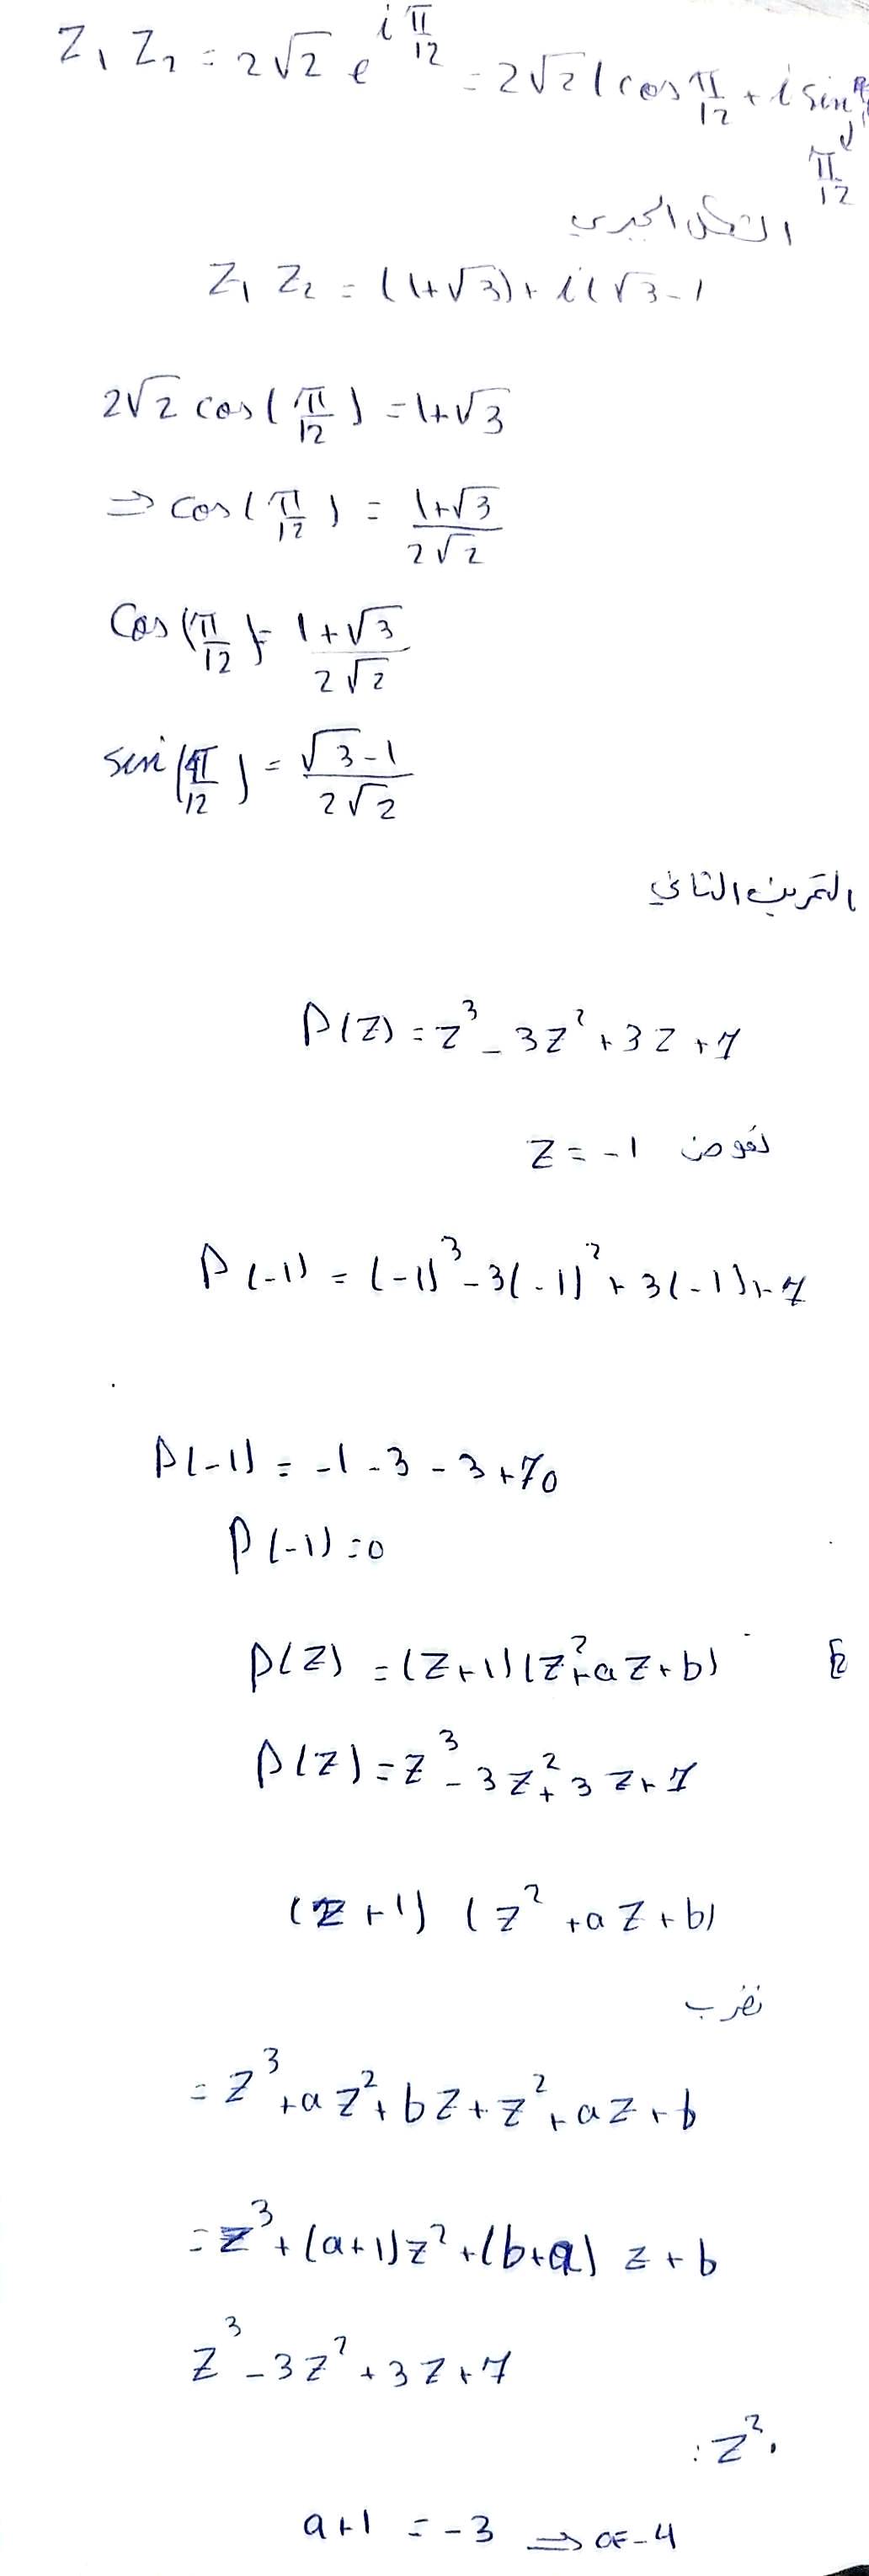 Z₁ Z₂ = 2√2 e^{i π/12} = 2√2 ( cos π/12 + i sin π/12
الشكل الجبري
Z₁ Z₂ = (1+√3) + i(√3-1
2√2 cos( π/12 ) = 1+√3
⇒ cos( π/12 ) = 1+√3 / 2√2
Cos(π/12) = 1+√3 / 2√2
sin(π/12) = √3-1 / 2√2
التمرين الثاني
P(Z) = z³ - 3z² + 3Z + 7
نعوض Z = -1
P(-1) = (-1)³ - 3(-1)² + 3(-1) + 7
P(-1) = -1 - 3 - 3 + 7 0
P(-1) = 0
P(Z) = (Z+1)(Z²+aZ+b) 2
P(Z) = Z³ - 3Z² + 3Z + 7
(Z+1) (Z² + aZ + b)
نضرب
= Z³ + aZ² + bZ + Z² + aZ + b
= Z³ + (a+1)Z² + (b+a) Z + b
Z³ - 3Z² + 3Z + 7
: Z² .
a+1 = -3 ⇒ a=-4